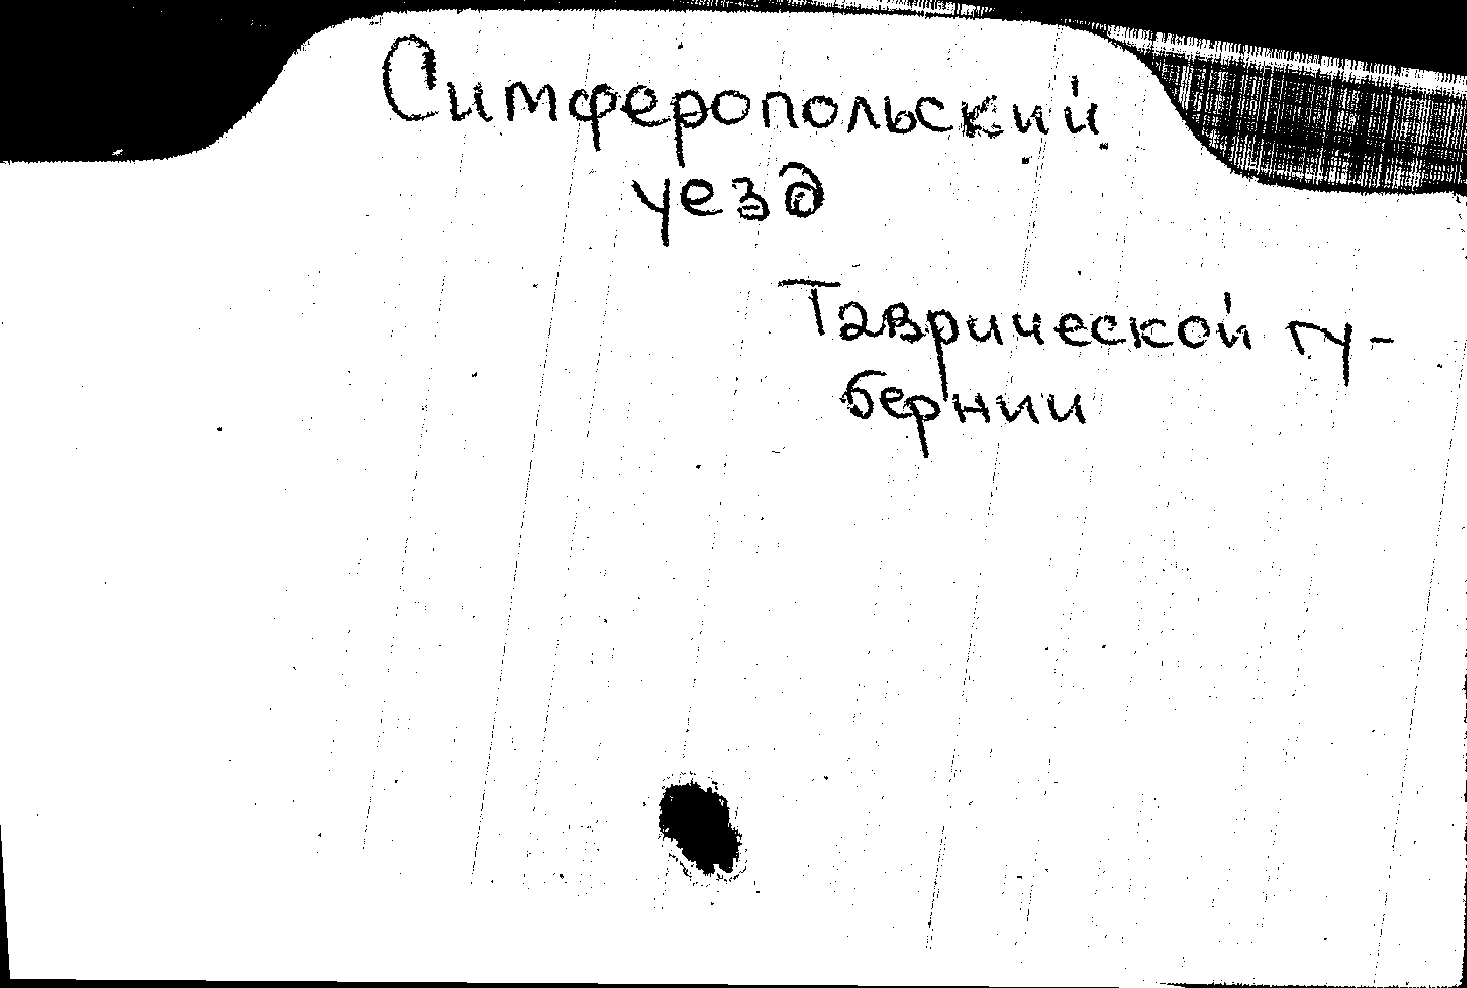 Симферопольский
уезд
Таврической гу-
бернии